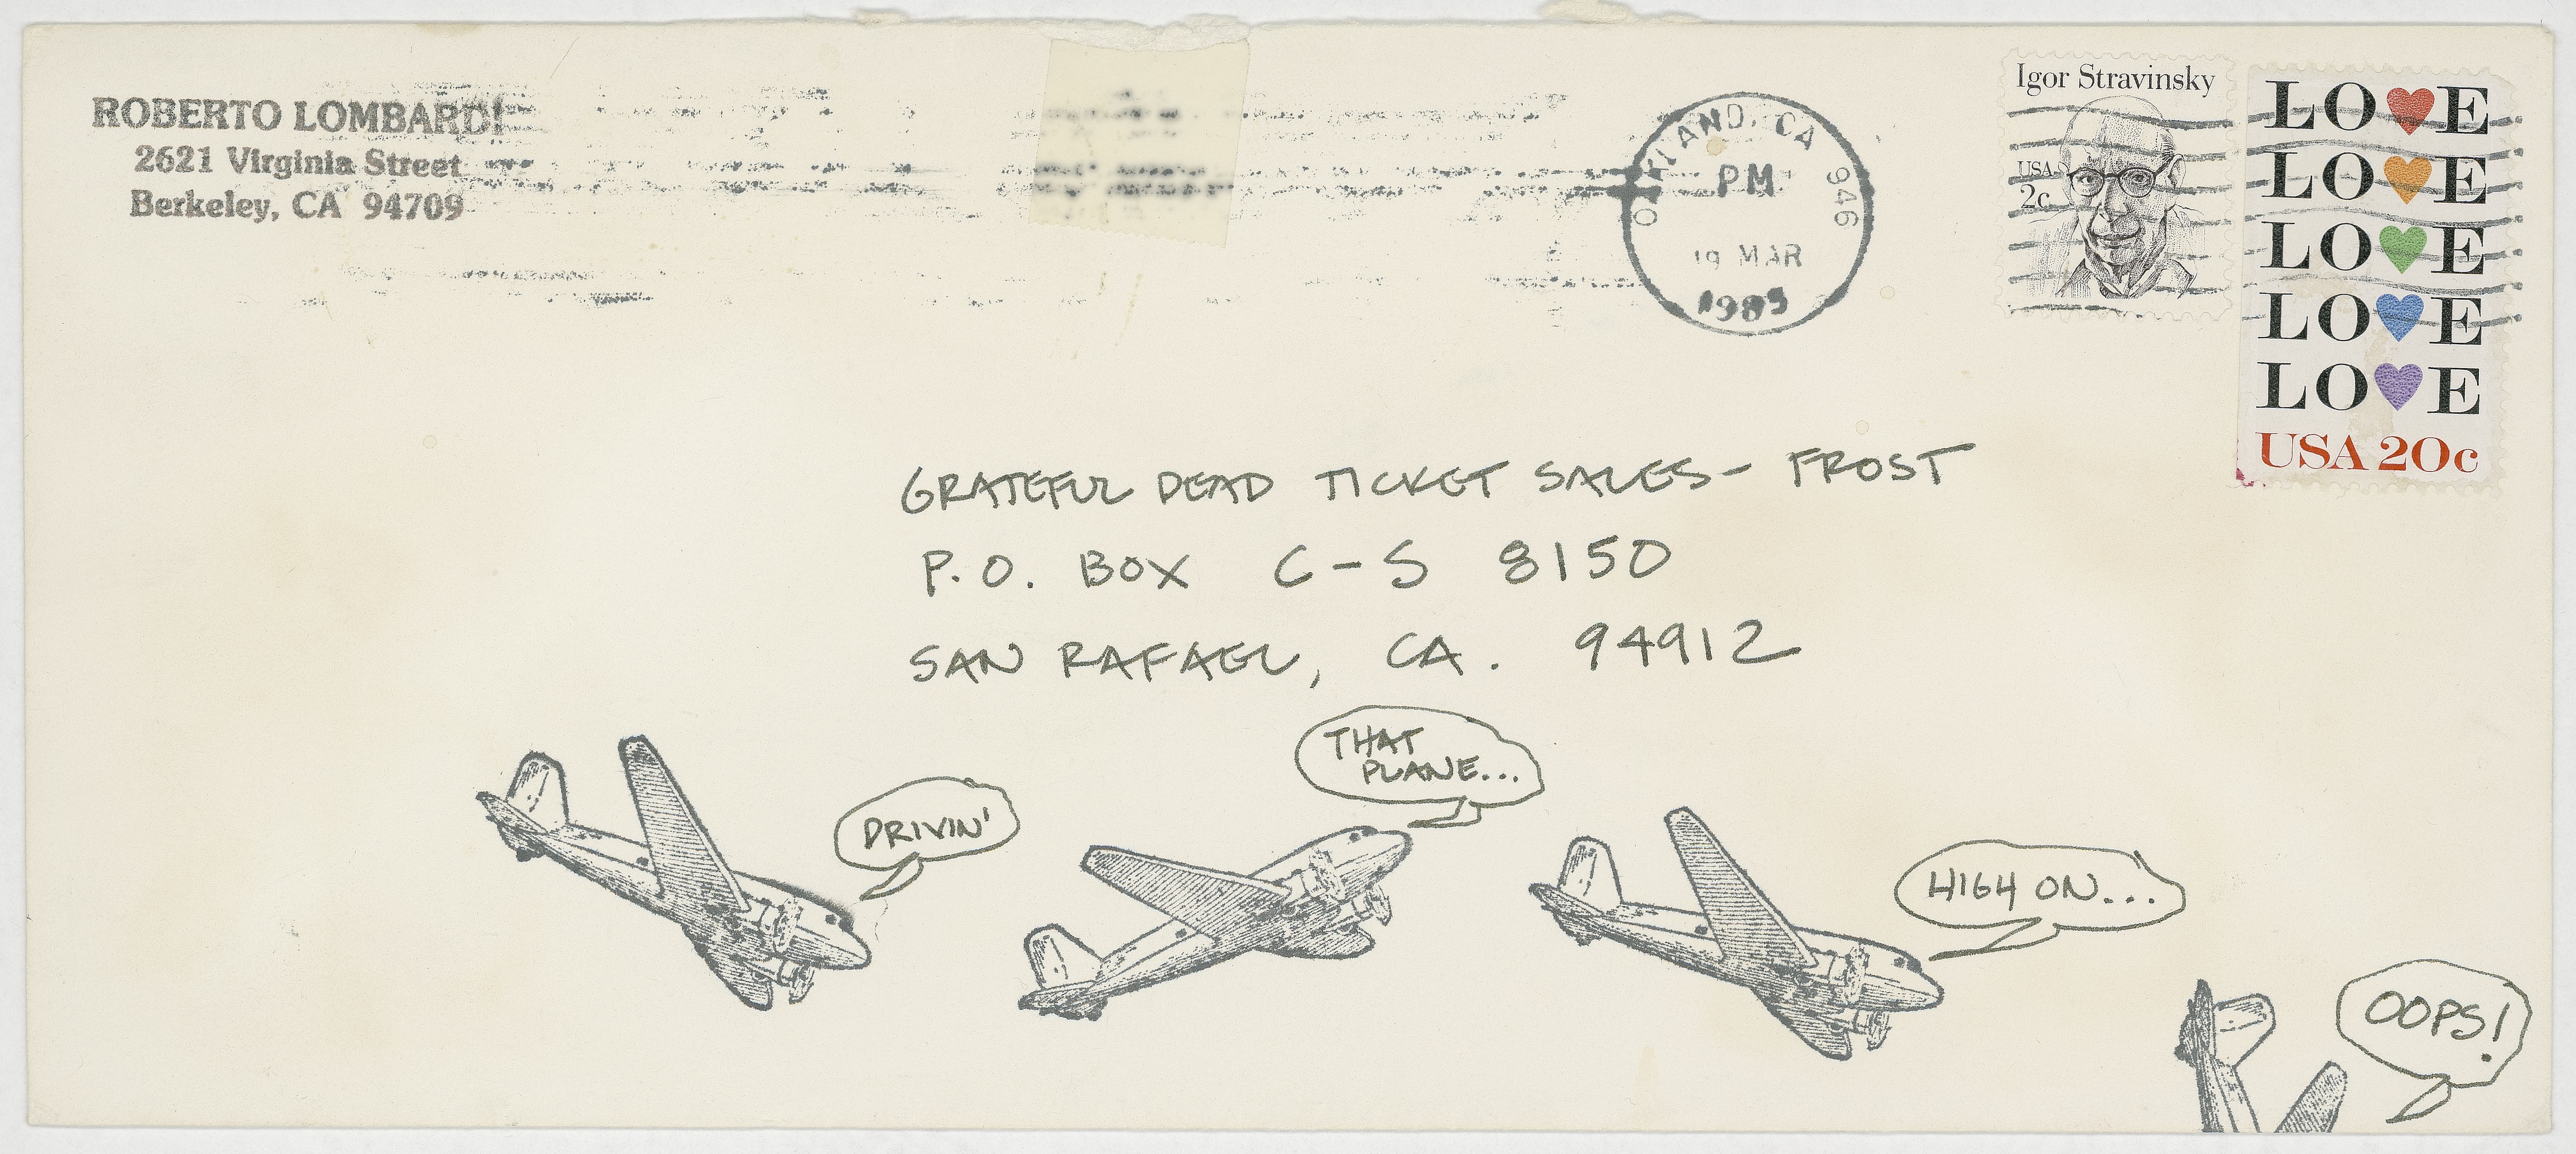 ROBERTO LOMBARDI
2621 Virginia Street
Berkeley, CA 94709
OAKLAND, CA 946
PM
19 MAR
1985
Igor Stravinsky
USA
2c
LO♥E
LO♥E
LO♥E
LO♥E
LO♥E
USA 20c
GRATEFUL DEAD TICKET SALES- FROST
P.O. BOX C-S 8150
SAN RAFAEL, CA. 94912
DRIVIN'
THAT
PLANE...
HIGH ON...
OOPS!